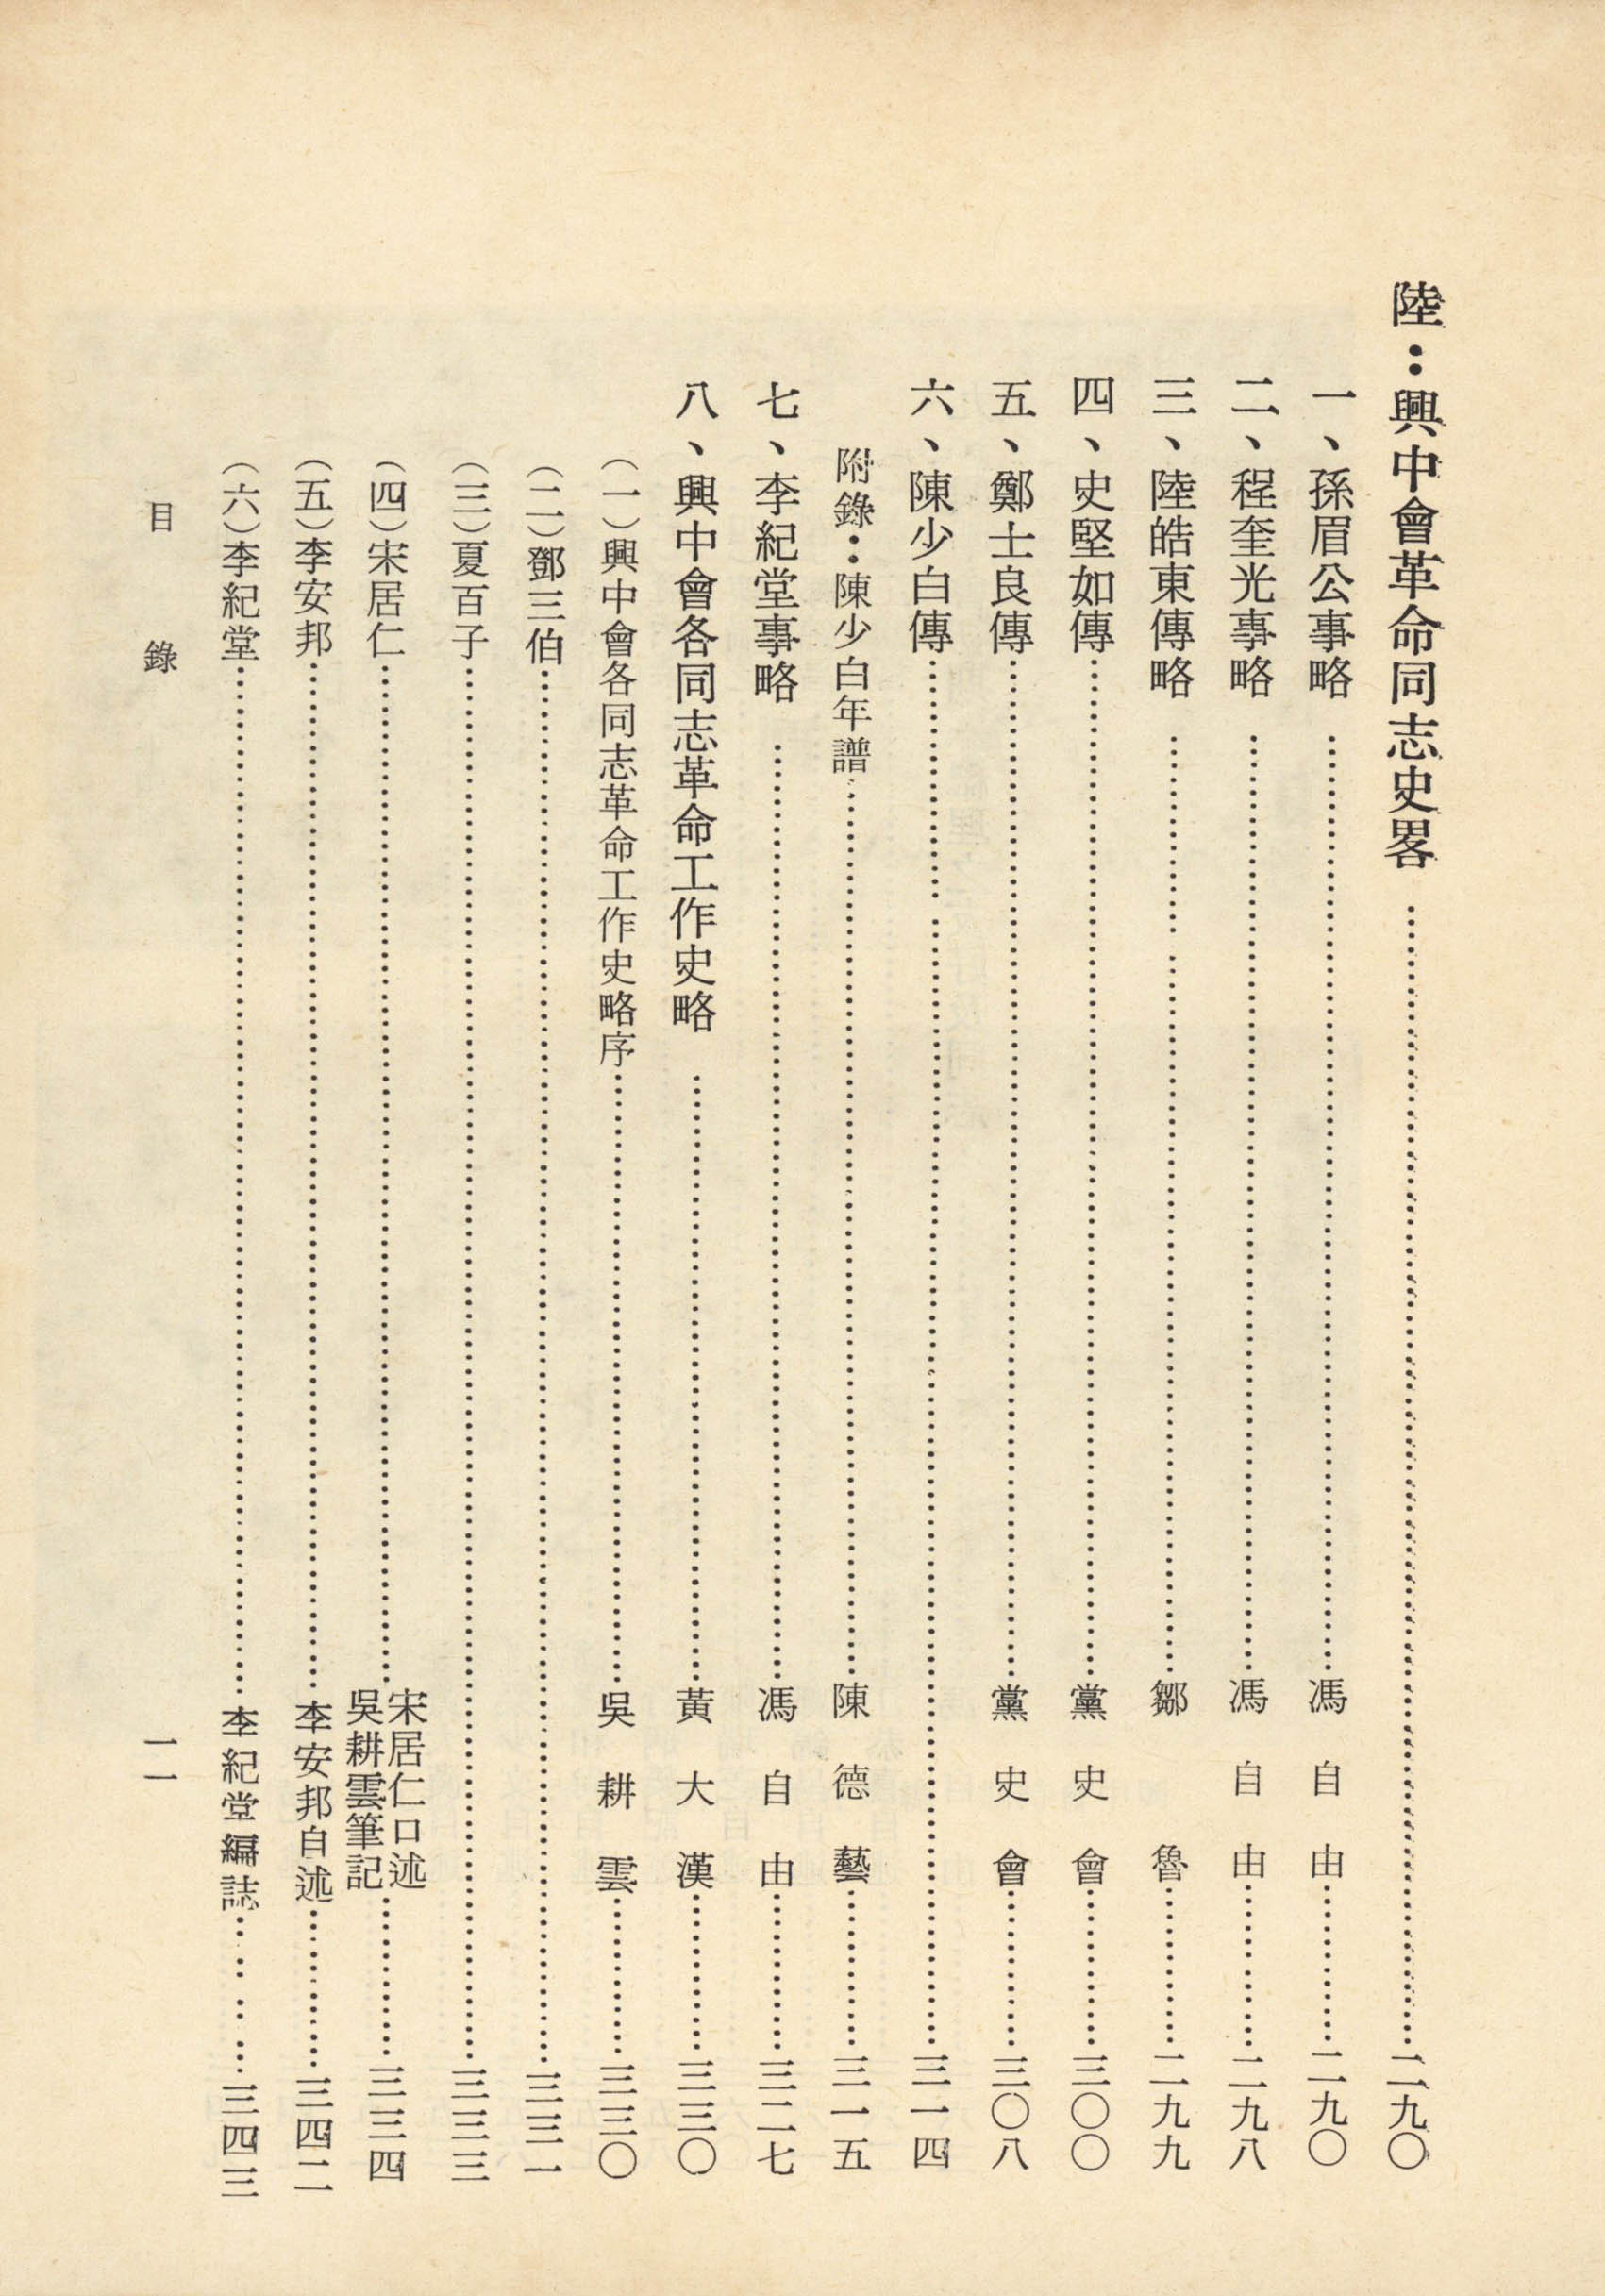 陸：興中會革命同志史畧……二九〇
一、孫眉公事略……馮自由……二九〇
二、程奎光事略……馮自由……二九八
三、陸皓東傳略……鄒魯……二九九
四、史堅如傳……黨史會……三〇〇
五、鄭士良傳……黨史會……三〇八
六、陳少白傳……三一四
附錄：陳少白年譜……陳德藝……三一五
七、李紀堂事略……馮自由……三二七
八、興中會各同志革命工作史略……黃大漢……三三〇
（一）興中會各同志革命工作史略序……吳耕雲……三三〇
（二）鄧三伯……三三一
（三）夏百子……三三三
（四）宋居仁……宋居仁口述
吳耕雲筆記……三三四
（五）李安邦……李安邦自述……三四二
（六）李紀堂……李紀堂編誌……三四三
目錄
一一